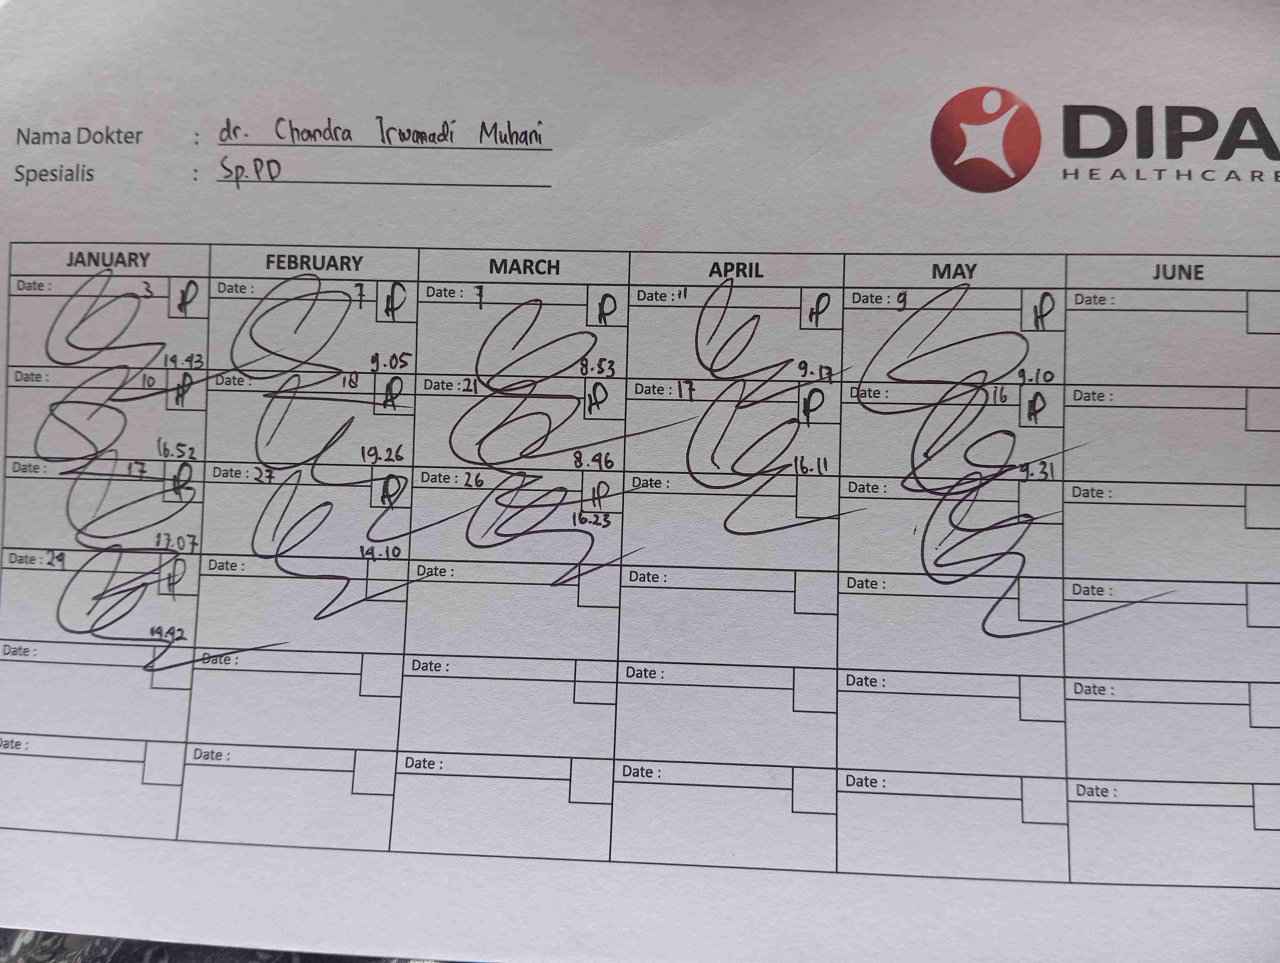 Nama Dokter : dr. Chandra Irwanadi Muhani
Spesialis : Sp.PD
DIPA
HEALTHCARE
JANUARY FEBRUARY MARCH APRIL MAY JUNE
Date : 3 Date : 7 Date : 7 Date : 11 Date : 9 Date :
14.43 9.05 8.53 9.17 9.10
Date : 10 Date : 18 Date : 21 Date : 17 Date : 16 Date :
16.52 19.26 8.46 16.11 9.31
Date : 17 Date : 27 Date : 26 Date : Date : Date :
17.07 14.10 16.23
Date : 29 Date : Date : Date : Date : Date :
14.42
Date : Date : Date : Date : Date : Date :
Date : Date : Date : Date : Date : Date :